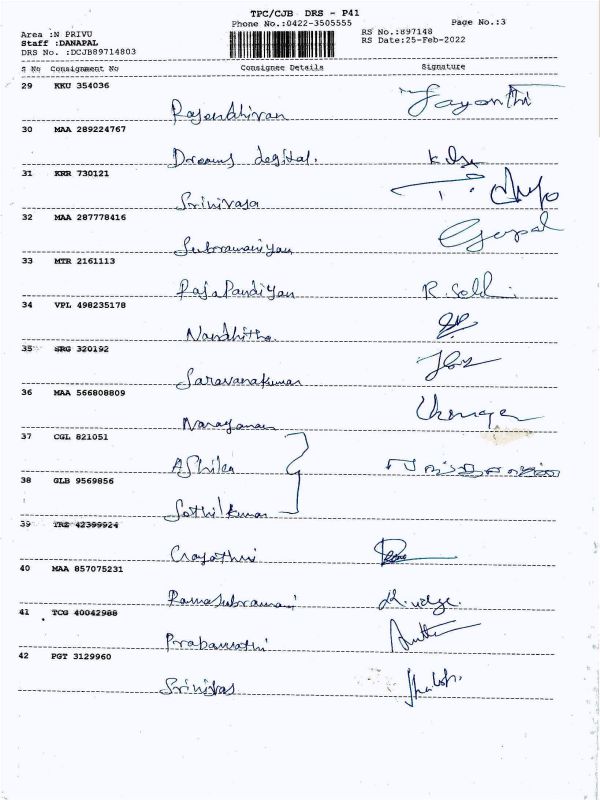 TPC/CJB DRS - P41
Phone No.:0422-3505555 Page No.:3
Area :N PRIVU RS No.:897148
Staff :DANAPAL RS Date:25-Feb-2022
DRS No. :DCJB89714803
S No Consignment No Consignee Details Signature
29 KKU 354036
Rajendhiran Jayanthi
30 MAA 289224767
Dreams degital.
31 KRR 730121
Srinivasa
32 MAA 287778416
Subramaniyan Gopal
33 MTR 2161113
RajaPandiyan
34 VPL 498235178
Nandhitha
35 SRG 320192
Saravanakumar
36 MAA 566808809
Narayanan
37 CGL 821051
Ashika
38 GLB 9569856
Sathikumar
39 TRE 42399924
Gayathri
40 MAA 857075231
Ramasubramani
41 TCG 40042988
Prabavathi
42 PGT 3129960
Srinivas